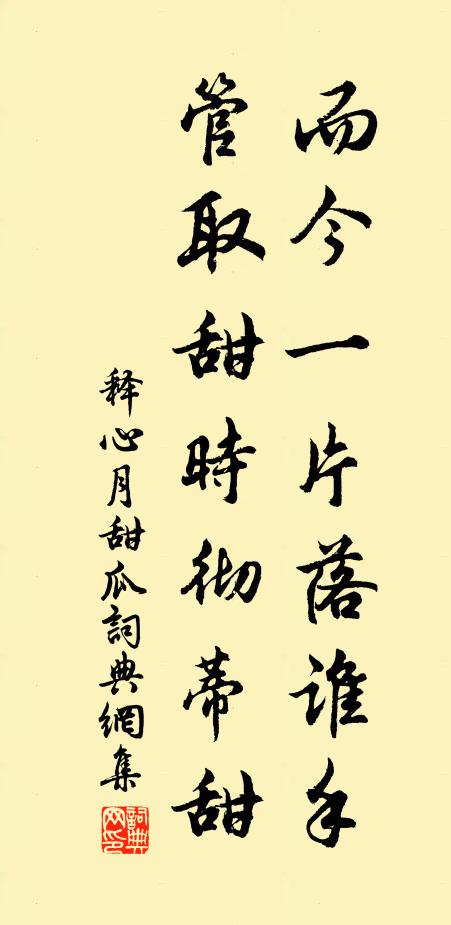 而今一片落谁手
管取甜時彻蒂甜
释心月甜瓜詞典網集
詞典
网印